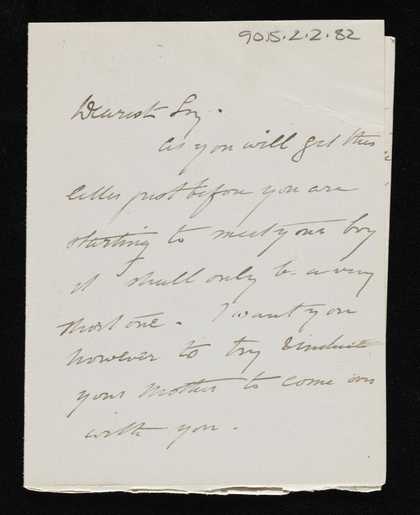 9015.2.2.82
Dearest
As you will get this
letter just before you are
starting to meet your boy
it shall only be a very
short one. I want you
however to try & induce
your mother to come on
with you.